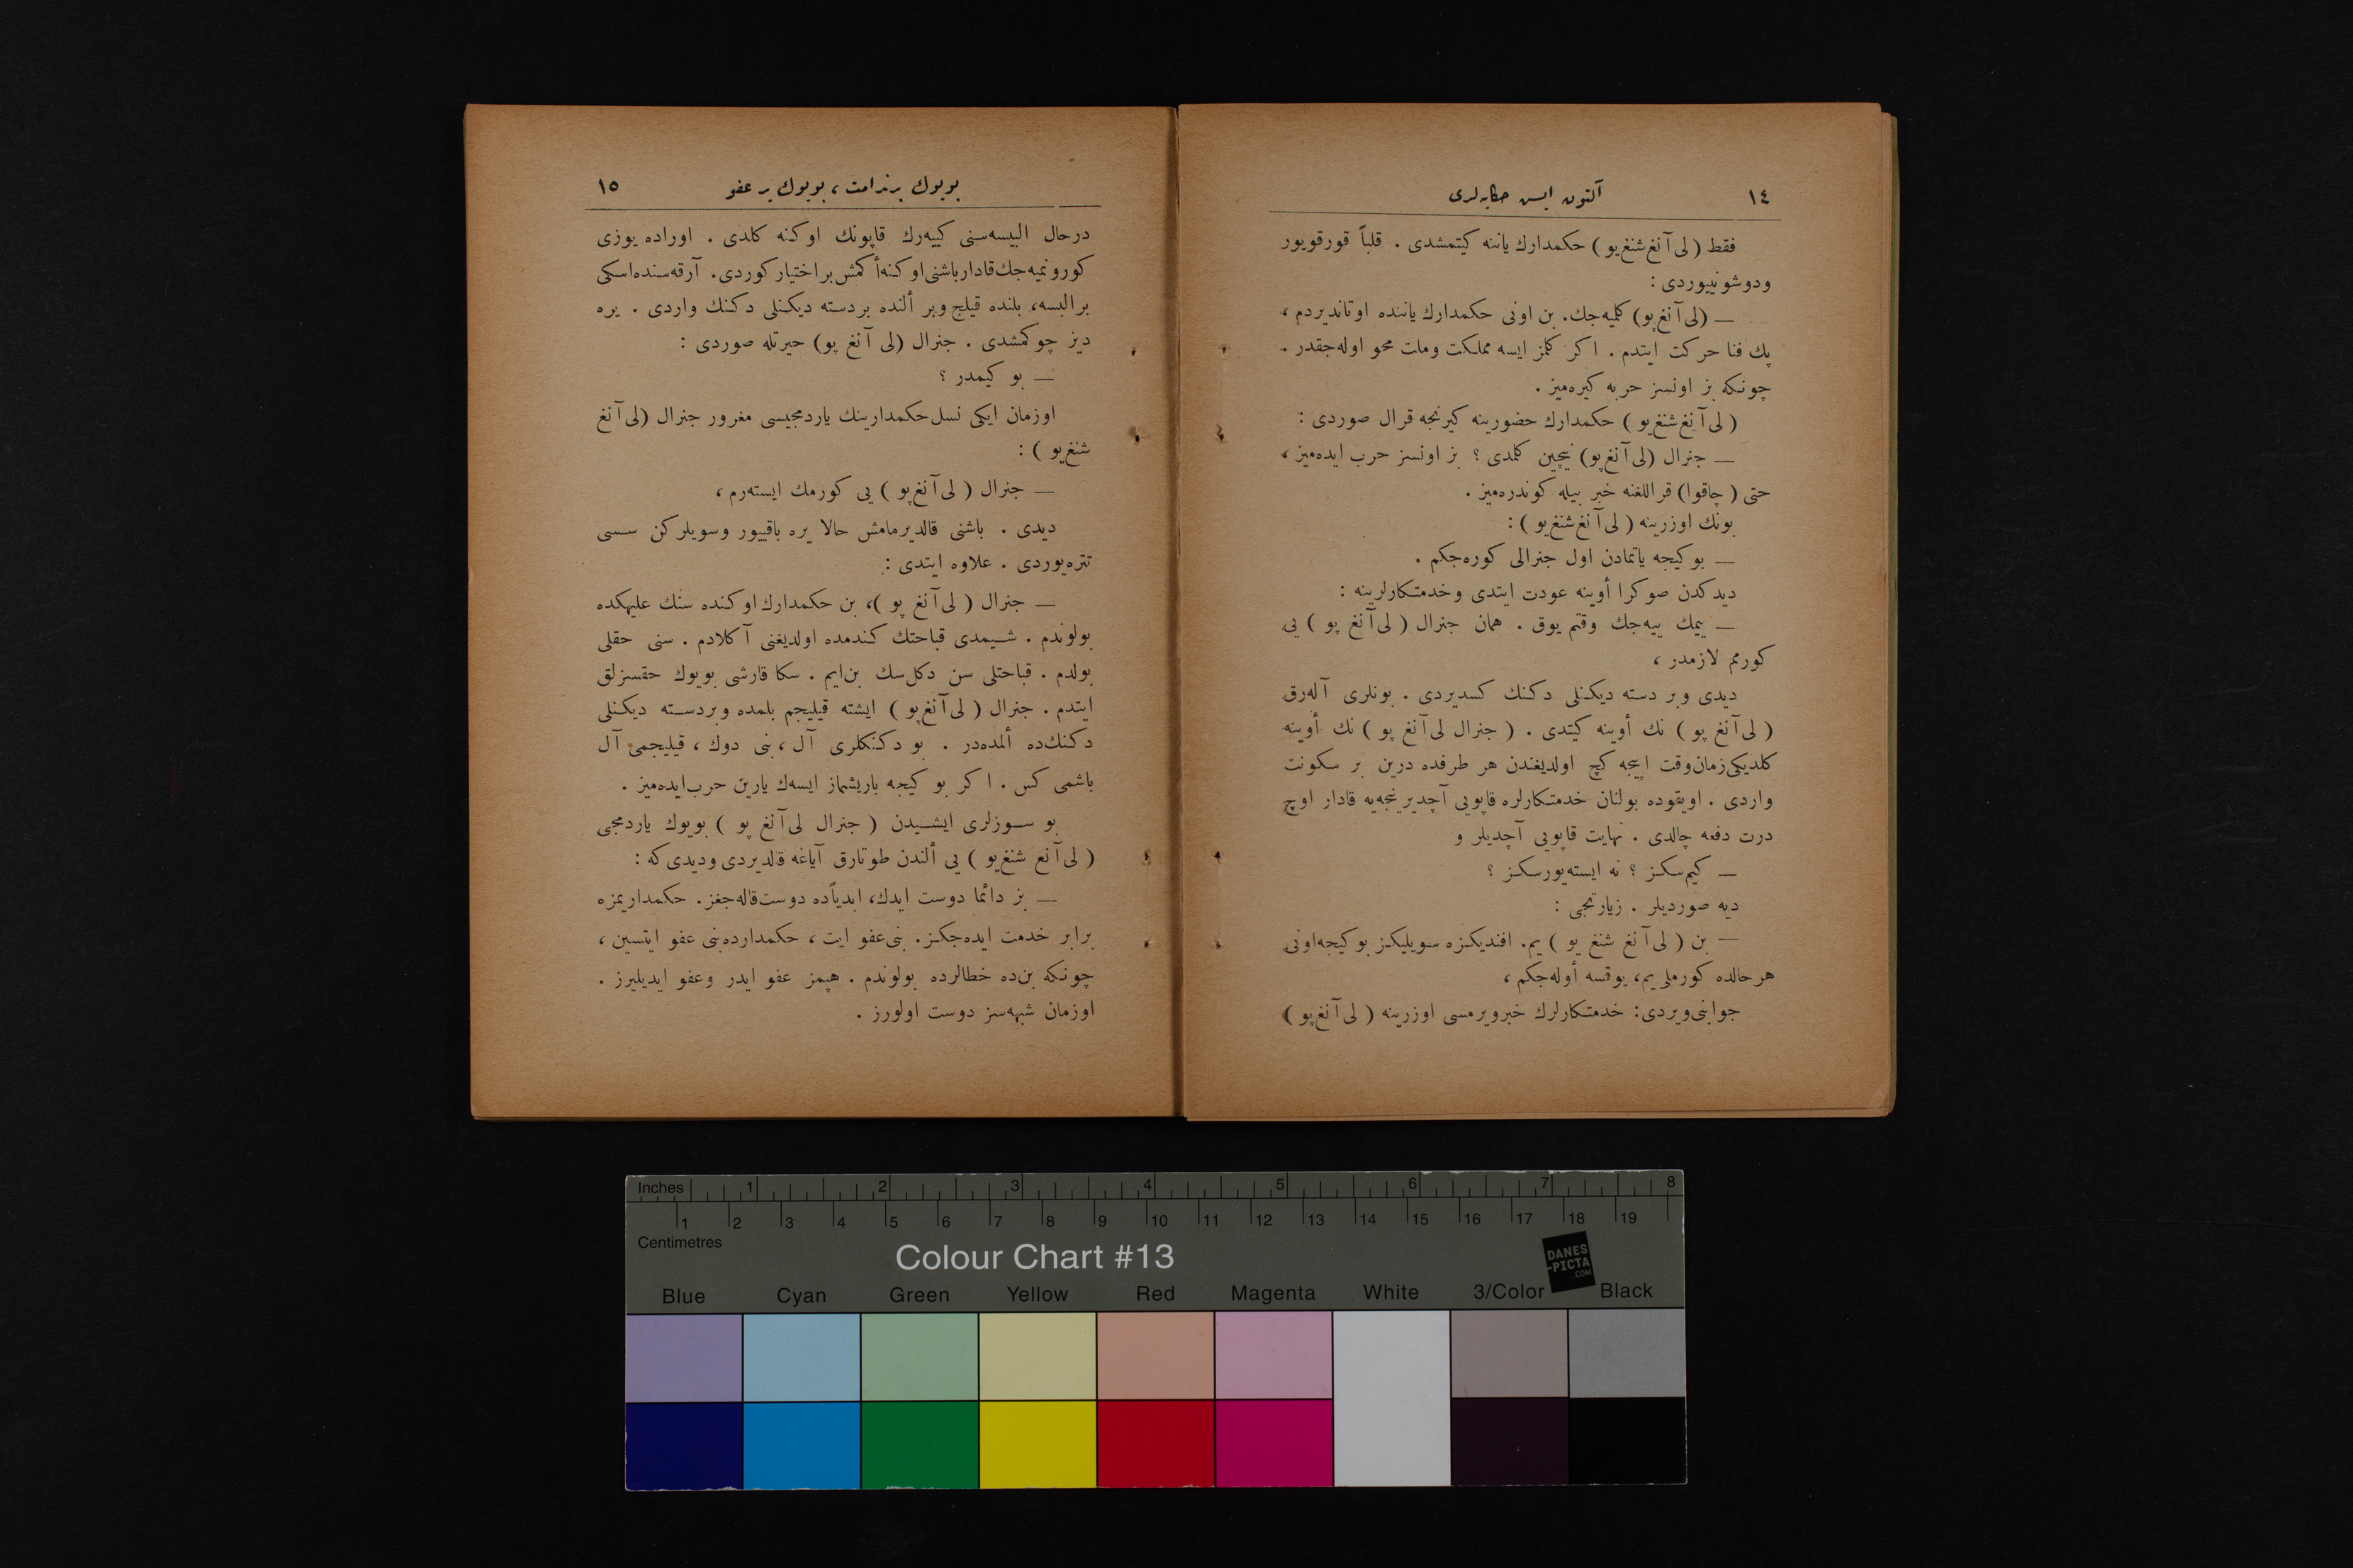 ١٤
آلتون ايس حكايه‌لرى
فقط ( لى آنغ شنغ يو ) حكمدارك ياننه كيتمشدى . قلباً قورقويور
ودوشونييوردى :
— (لى آنغ پو) كليه‌جك. بن اونى حكمدارك ياننده اوتانديردم ،
پك فنا حركت ايتدم . اكر كلمز ايسه مملكت وملت محو اوله‌جقدر .
چونكه بز اونسز حربه كيره‌ميز .
( لى آنغ شنغ يو ) حكمدارك حضورينه كيرنجه قرال صوردى :
— جنرال (لى آنغ پو) نيچين كلمدى ؟ بز اونسز حرب ايده‌ميز ،
حتى ( چاقوا) قراللغنه خبر بيله كوندره‌ميز .
بونك اوزرينه ( لى آنغ شنغ يو ) :
— بو كيجه ياتمادن اول جنرالى كوره‌جكم .
ديدكدن صوكرا أوينه عودت ايتدى وخدمتكارلرينه :
— ييمك ييه‌جك وقتم يوق . همان جنرال ( لى آنغ پو ) يى
كورمم لازمدر ،
ديدى وبر دسته ديكنلى دكنك كسديردى . بونلرى آله‌رق
( لى آنغ پو ) نك أوينه كيتدى . ( جنرال لى آنغ پو ) نك أوينه
كلديكى زمان وقت اييجه كچ اولديغندن هر طرفده درين بر سكونت
واردى . اويقوده بولنان خدمتكارلره قاپويى آچديرنجه‌يه قادار اوچ
درت دفعه چالدى . نهايت قاپويى آچديلر و
— كيم‌سكز ؟ نه ايسته‌يورسكز ؟
ديه صورديلر . زيارتجى :
— بن ( لى آنغ شنغ يو ) يم. افنديكزه سويليكز بو كيجه اونى
هر حالده كورملى يم، يوقسه أوله‌جكم ،
جوابنى ويردى : خدمتكارلرك خبر ويرمسى اوزرينه ( لى آنغ پو )
بويوك بر ندامت ، بويوك بر عفو
١٥
درحال البيسه‌سنى كييه‌رك قاپونك اوكنه كلدى . اوراده يوزى
كورونميه‌جك قادار باشنى اوكنه أكمش بر اختيار كوردى. آرقه‌سنده اسكى
بر البسه، بلنده قيلج وبر ألنده بر دسته ديكنلى دكنك واردى . يره
ديز چوكمشدى . جنرال (لى آنغ پو) حيرتله صوردى :
— بو كيمدر ؟
اوزمان ايكى نسل حكمدارينك ياردمجيسى مغرور جنرال (لى آنغ
شنغ يو ) :
— جنرال ( لى آنغ پو ) يى كورمك ايسته‌رم ،
ديدى . باشنى قالديرمامش حالا يره باقييور وسويلركن سسى
تتره‌يوردى . علاوه ايتدى :
— جنرال ( لى آنغ پو )، بن حكمدارك اوكنده سنك عليهكده
بولوندم . شيمدى قباحتك كندمده اولديغنى آكلادم . سنى حقلى
بولدم . قباحتلى سن دكل‌سك بن‌ايم . سكا قارشى بويوك حقسزلق
ايتدم . جنرال ( لى آنغ پو ) ايشته قيليجم بلمده وبر دسته ديكنلى
دكنك‌ده ألمده‌در . بو دكنكلرى آل ، بنى دوك ، قيليجمى آل
باشمى كس . اكر بو كيجه باريشماز ايسه‌ك يارين حرب ايده‌ميز .
بو سوزلرى ايشيدن ( جنرال لى آنغ پو ) بويوك ياردمجى
( لى آنغ شنغ يو ) يى ألندن طوتارق آياغه قالديردى وديدى كه :
— بز دائما دوست ايدك، ابدياً ده دوست قاله‌جغز. حكمداريمزه
برابر خدمت ايده‌جكز. بنى عفو ايت ، حكمدارده بنى عفو ايتسين ،
چونكه بن‌ده خطالرده بولوندم . هپمز عفو ايدر وعفو ايديليرز .
اوزمان شبهه‌سز دوست اولورز .
Inches 1 2 3 4 5 6 7 8
1 2 3 4 5 6 7 8 9 10 11 12 13 14 15 16 17 18 19
Centimetres
Colour Chart #13
DANES
-PICTA
.COM
Blue Cyan Green Yellow Red Magenta White 3/Color Black